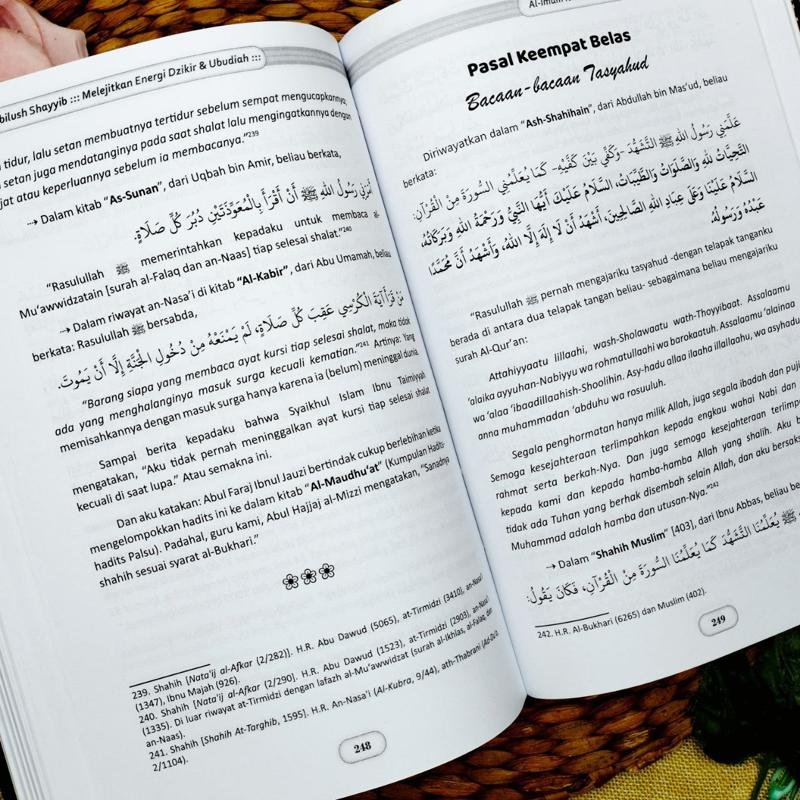 bilush Shayyib ::: Melejitkan Energi Dzikir & Ubudiah :::
tidur, lalu setan membuatnya tertidur sebelum sempat mengucapkannya;
setan juga mendatanginya pada saat shalat lalu mengingatkannya dengan
jat atau keperluannya sebelum ia membacanya."239
⇢ Dalam kitab "As-Sunan", dari Uqbah bin Amir, beliau berkata,
أَمَرَنِي رَسُولُ اللهِ ﷺ أَنْ أَقْرَأَ بِالْمُعَوِّذَتَيْنِ دُبُرَ كُلِّ صَلَاةٍ.
"Rasulullah ﷺ memerintahkan kepadaku untuk membaca al-
Mu'awwidzatain [surah al-Falaq dan an-Naas] tiap selesai shalat."240
⇢ Dalam riwayat an-Nasa'i di kitab "Al-Kabir", dari Abu Umamah, beliau
berkata: Rasulullah ﷺ bersabda,
مَنْ قَرَأَ آيَةَ الْكُرْسِي عَقِبَ كُلِّ صَلَاةٍ، لَمْ يَمْنَعْهُ مِنْ دُخُولِ الْجَنَّةِ إِلَّا أَنْ يَمُوتَ.
"Barang siapa yang membaca ayat kursi tiap selesai shalat, maka tidak
ada yang menghalanginya masuk surga kecuali kematian."241 Artinya: Yang
memisahkannya dengan masuk surga hanya karena ia (belum) meninggal dunia.
Sampai berita kepadaku bahwa Syaikhul Islam Ibnu Taimiyyah
mengatakan, "Aku tidak pernah meninggalkan ayat kursi tiap selesai shalat
kecuali di saat lupa." Atau semakna ini.
Dan aku katakan: Abul Faraj Ibnul Jauzi bertindak cukup berlebihan ketika
mengelompokkan hadits ini ke dalam kitab "Al-Maudhu'at" (Kumpulan Hadits-
hadits Palsu). Padahal, guru kami, Abul Hajjaj al-Mizzi mengatakan, "Sanadnya
shahih sesuai syarat al-Bukhari."
239. Shahih [Nata'ij al-Afkar (2/282)]. H.R. Abu Dawud (5065), at-Tirmidzi (3410), an-Nasa'i
(1347), Ibnu Majah (926).
240. Shahih [Nata'ij al-Afkar (2/290]. H.R. Abu Dawud (1523), at-Tirmidzi (2903), an-Nasa'i
(1335). Di luar riwayat at-Tirmidzi dengan lafazh al-Mu'awwidzat (surah al-Ikhlas, al-Falaq, dan
an-Naas).
241. Shahih [Shahih At-Targhib, 1595]. H.R. An-Nasa'i (Al-Kubra, 9/44), ath-Thabrani (Ad-Du'a
2/1104).
248
Pasal Keempat Belas
Bacaan-bacaan Tasyahud
Diriwayatkan dalam "Ash-Shahihain", dari Abdullah bin Mas'ud, beliau
berkata:
عَلَّمَنِي رَسُولُ اللهِ ﷺ التَّشَهُّدَ -وَكَفِّي بَيْنَ كَفَّيْهِ- كَمَا يُعَلِّمُنِي السُّورَةَ مِنَ الْقُرْآنِ:
التَّحِيَّاتُ لِلَّهِ وَالصَّلَوَاتُ وَالطَّيِّبَاتُ، السَّلَامُ عَلَيْكَ أَيُّهَا النَّبِيُّ وَرَحْمَةُ اللهِ وَبَرَكَاتُهُ،
السَّلَامُ عَلَيْنَا وَعَلَى عِبَادِ اللهِ الصَّالِحِينَ، أَشْهَدُ أَنْ لَا إِلَهَ إِلَّا اللهُ، وَأَشْهَدُ أَنَّ مُحَمَّدًا
عَبْدُهُ وَرَسُولُهُ
"Rasulullah ﷺ pernah mengajariku tasyahud -dengan telapak tanganku
berada di antara dua telapak tangan beliau- sebagaimana beliau mengajariku
surah Al-Qur'an:
Attahiyyaatu lillaahi, wash-Sholawaatu wath-Thoyyibaat. Assalaamu
'alaika ayyuhan-Nabiyyu wa rohmatullaahi wa barokaatuh. Assalaamu 'alainaa
wa 'alaa 'ibaadillaahish-Shoolihin. Asy-hadu allaa ilaaha illallaahu, wa asyhadu
anna muhammadan 'abduhu wa rosuuluh.
Segala penghormatan hanya milik Allah, juga segala ibadah dan puji
Semoga kesejahteraan terlimpahkan kepada engkau wahai Nabi dan
rahmat serta berkah-Nya. Dan juga semoga kesejahteraan terlimp
kepada kami dan kepada hamba-hamba Allah yang shalih. Aku b
tidak ada Tuhan yang berhak disembah selain Allah, dan aku bersaks
Muhammad adalah hamba dan utusan-Nya."242
⇢ Dalam "Shahih Muslim" [403], dari Ibnu Abbas, beliau be
ﷺ يُعَلِّمُنَا التَّشَهُّدَ كَمَا يُعَلِّمُنَا السُّورَةَ مِنَ الْقُرْآنِ، فَكَانَ يَقُولُ:
242. H.R. Al-Bukhari (6265) dan Muslim (402).
249